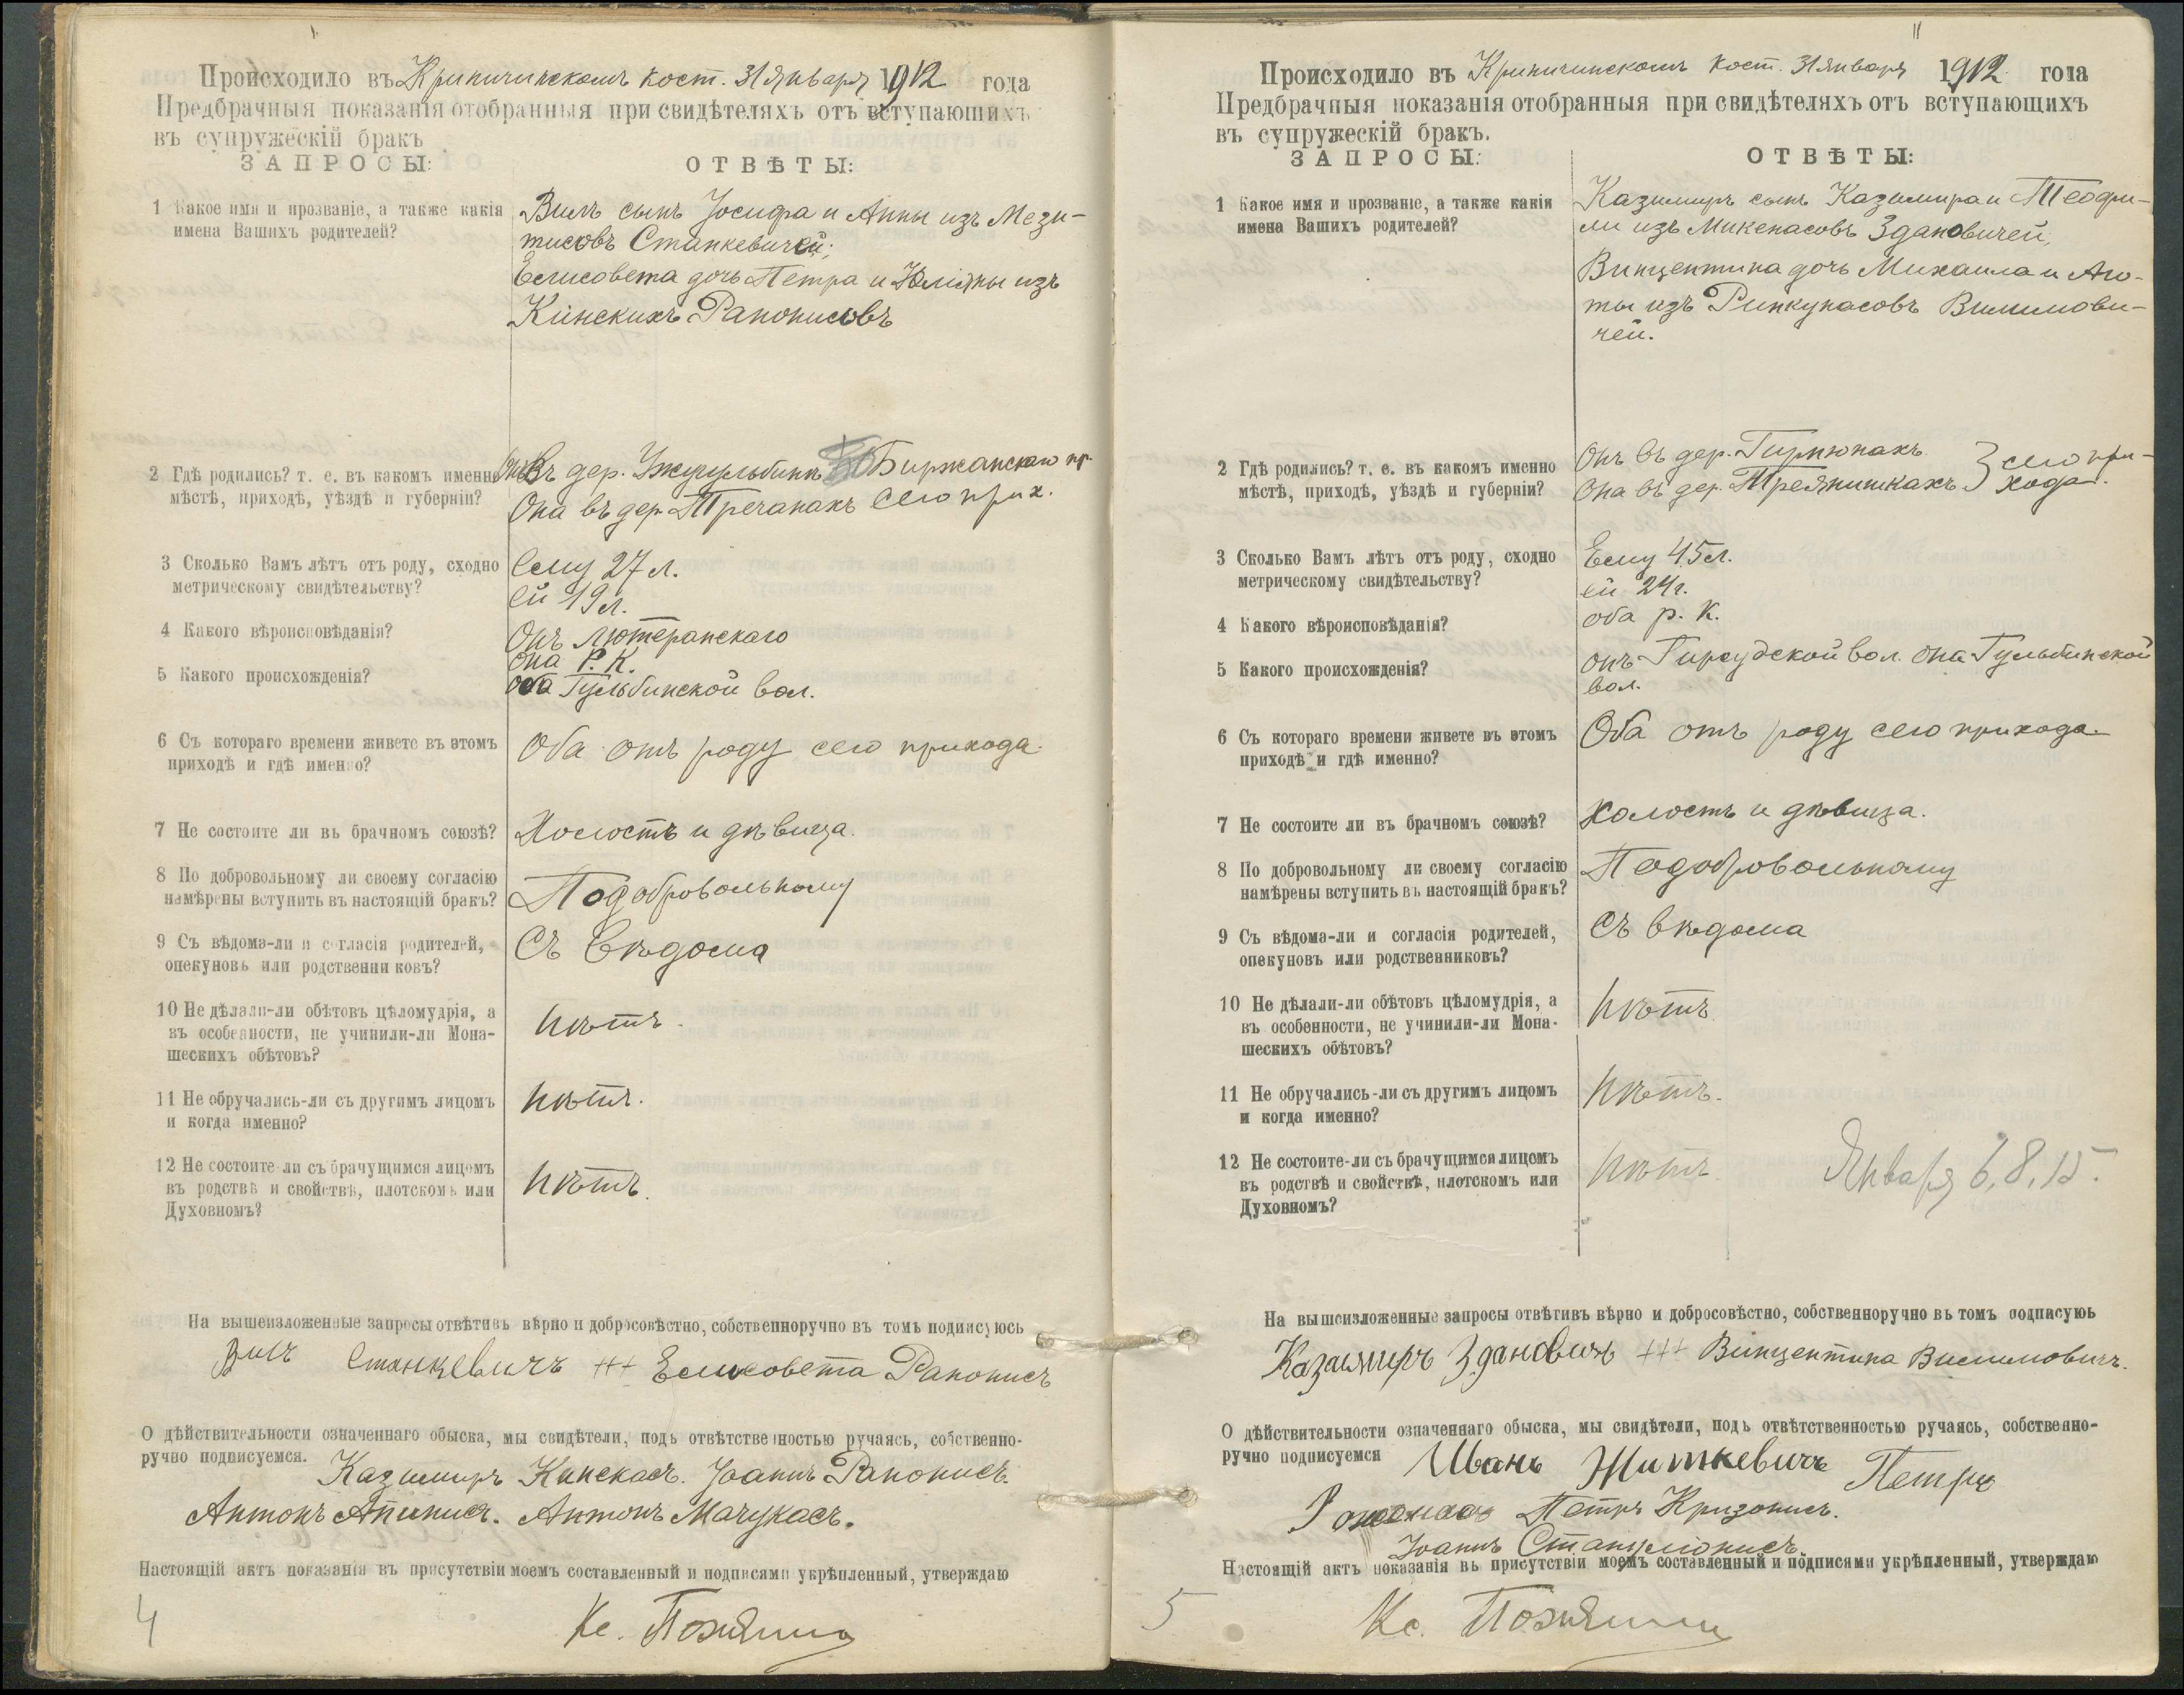 Происходило въ Криничинскомъ кост. 31 Января 1912 года
Предбрачныя показанія отобранныя при свидѣтеляхъ отъ вступающихъ
въ супружескій бракъ
ЗАПРОСЫ: ОТВѢТЫ:
1 Какое имя и прозваніе, а также какія
имена Вашихъ родителей?
Вилъ сынъ Іосифа и Анны изъ Мези-
тисовъ Станкевичей;
Елисовета дочь Петра и Юліяны изъ
Кинскихъ Рапописовъ
2 Гдѣ родились? т. е. въ какомъ именно
мѣстѣ, приходѣ, уѣздѣ и губерніи?
Онъ Въ дер. Биржанскаго пр.
Она въ дер. Тречанахъ сего прих.
3 Сколько Вамъ лѣтъ отъ роду, сходно
метрическому свидѣтельству?
Ему 27 л.
ей 19 л.
4 Какого вѣроисповѣданія?
Онъ лютеранскаго
она Р. К.
5 Какого происхожденія?
оба Гульбинской вол.
6 Съ котораго времени живете въ этомъ
приходѣ и гдѣ именно?
Оба отъ роду сего прихода.
7 Не состоите ли въ брачномъ союзѣ?
Холостъ и дѣвица.
8 По добровольному ли своему согласію
намѣрены вступить въ настоящій бракъ?
Подобровольному
9 Съ вѣдома-ли и согласія родителей,
опекуновъ или родственни ковъ?
Съ вѣдома
10 Не дѣлали-ли обѣтовъ цѣломудрія, а
въ особенности, не учинили-ли Мона-
шескихъ обѣтовъ?
Нѣтъ.
11 Не обручались-ли съ другимъ лицомъ
и когда именно?
Нѣтъ.
12 Не состоите-ли съ брачущимся лицомъ
въ родствѣ и свойствѣ, плотскомъ или
Духовномъ?
Нѣтъ.
На вышеизложенные запросы отвѣтивъ вѣрно и добросовѣстно, собственноручно въ томъ подписуюсь
Вилъ Станкевичъ +++ Елисовета Рапописъ
О дѣйствительности означеннаго обыска, мы свидѣтели, подъ отвѣтственностью ручаясь, собственно-
ручно подписуемся. Казимиръ Кинскасъ. Іоаннъ Рапописъ.
Антонъ Апинисъ. Антонъ Мачукасъ.
Настоящій актъ показанія въ присутствіи моемъ составленный и подписями укрѣпленный, утверждаю
Кс.
4
Происходило въ Криничинскомъ кост. 31 января 1912 года
Предбрачныя показанія отобранныя при свидѣтеляхъ отъ вступающихъ
въ супружескій бракъ.
ЗАПРОСЫ: ОТВѢТЫ:
1 Какое имя и прозваніе, а также какія
имена Вашихъ родителей?
Казимиръ сынъ Казимира и Теофи-
ли изъ Микенасовъ Здановичей;
Винцентина дочь Михаила и Аго-
ты изъ Ринкунасовъ Вилимови-
чей.
2 Гдѣ родились? т. е. въ какомъ именно
мѣстѣ, приходѣ, уѣздѣ и губерніи?
Онъ въ дер. Гирнюнахъ } сего при-
Она въ дер. Треянишкахъ } хода.
3 Сколько Вамъ лѣтъ отъ роду, сходно
метрическому свидѣтельству?
Ему 45 л.
ей 24 г.
4 Какого вѣроисповѣданія?
оба р. К.
5 Какого происхожденія?
онъ Гирсудской вол. она Гульбинской
вол.
6 Съ котораго времени живете въ этомъ
приходѣ и гдѣ именно?
Оба отъ роду сего прихода.
7 Не состоите ли въ брачномъ союзѣ?
Холостъ и дѣвица.
8 По добровольному ли своему согласію
намѣрены вступить въ настоящій бракъ?
Подобровольному
9 Съ вѣдома-ли и согласія родителей,
опекуновъ или родственниковъ?
Съ вѣдома
10 Не дѣлали-ли обѣтовъ цѣломудрія, а
въ особенности, не учинили-ли Мона-
шескихъ обѣтовъ?
Нѣтъ.
11 Не обручались-ли съ другимъ лицомъ
и когда именно?
Нѣтъ.
12 Не состоите-ли съ брачущимся лицомъ
въ родствѣ и свойствѣ, плотскомъ или
Духовномъ?
Нѣтъ. Января 6, 8, 15.
На вышеизложенные запросы отвѣтивъ вѣрно и добросовѣстно, собственноручно въ томъ подписуюь
Казимиръ Здановичъ +++ Винцентина Вилимовичъ.
О дѣйствительности означеннаго обыска, мы свидѣтели, подъ отвѣтственностью ручаясь, собственно-
ручно подписуемся Иванъ Житкевичъ Петръ
Петръ Кризописъ.
Іоаннъ
Настоящій актъ показанія въ присутствіи моемъ составленный и подписями укрѣпленный, утверждаю
Кс.
5